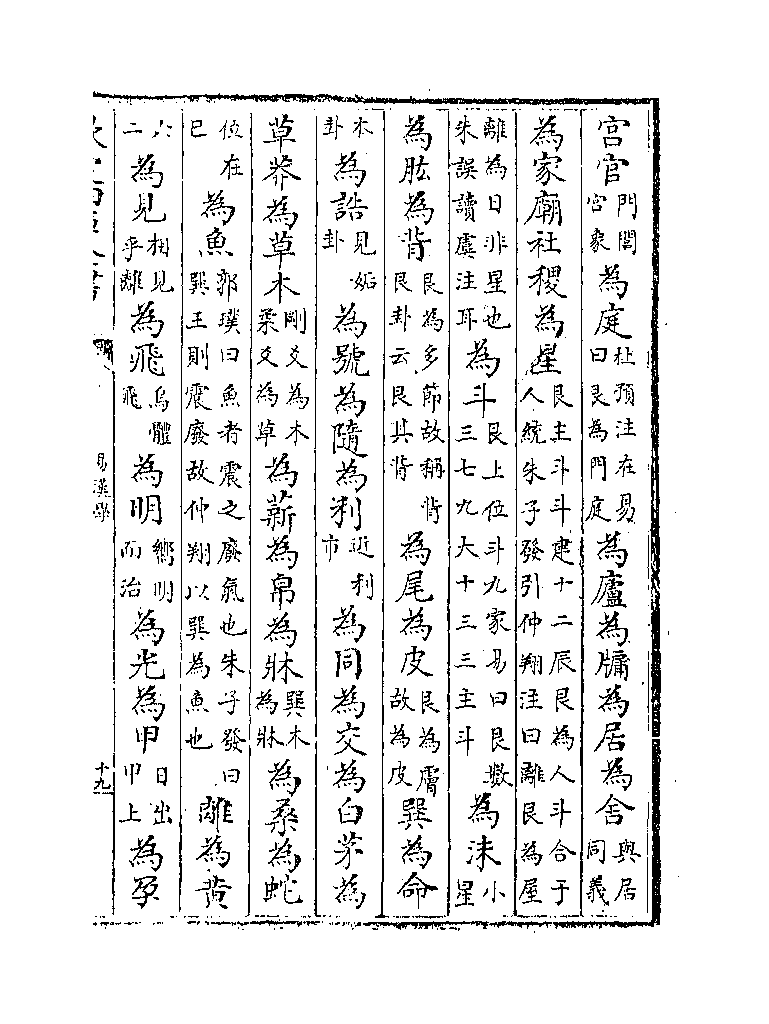 宫官門闕宫象為庭杜預注在易曰艮為門庭為廬為牖為居為舍與居同義
為家廟社稷為星艮主斗斗建十二辰艮為人斗合于人統朱子發引仲翔注曰離艮為星
離為日非星也朱誤讀虞注耳為斗艮上位斗九家易曰艮數三七九六十三三主斗為沬小星
為肱為背艮為多節故稱背艮卦云艮其背為尾為皮艮為膚故為皮巽為命
本卦為誥見姤卦為號為隨為利近利市為同為交為白茅為
草莽為草木剛爻為木柔爻為草為薪為帛為牀巽木為牀為桑為蛇
位在巳為魚郭璞曰魚者震之廢氣也朱子發曰巽王則震廢故仲翔以巽為魚也離為黄
六二為見相見乎離為飛鳥體飛為明嚮明而治為光為甲日出甲上為孕
易漢學
十九